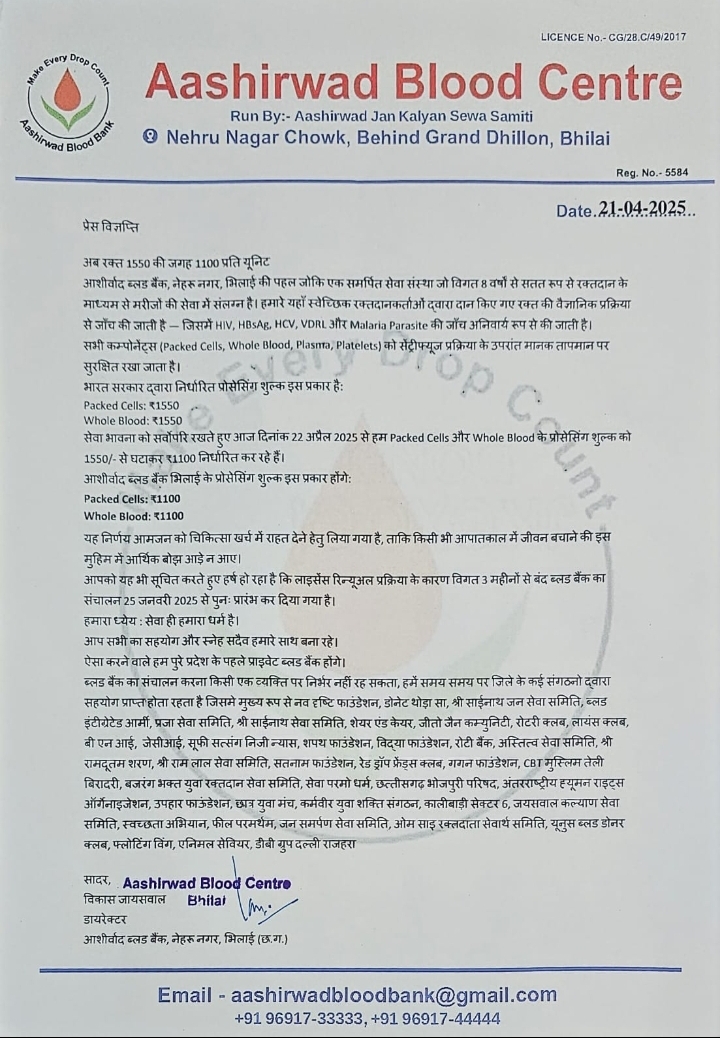 LICENCE No.- CG/28.C/49/2017
Make Every Drop Count
Aashirwad Blood Bank
Aashirwad Blood Centre
Run By:- Aashirwad Jan Kalyan Sewa Samiti
Nehru Nagar Chowk, Behind Grand Dhillon, Bhilai
Reg. No.- 5584
Date.21-04-2025..
प्रेस विज्ञप्ति
अब रक्त 1550 की जगह 1100 प्रति यूनिट
आशीर्वाद ब्लड बैंक, नेहरू नगर, भिलाई की पहल जोकि एक समर्पित सेवा संस्था जो विगत 8 वर्षों से सतत रूप से रक्तदान के
माध्यम से मरीजों की सेवा में संलग्न है। हमारे यहाँ स्वेच्छिक रक्तदानकर्ताओं द्वारा दान किए गए रक्त की वैज्ञानिक प्रक्रिया
से जाँच की जाती है — जिसमें HIV, HBsAg, HCV, VDRL और Malaria Parasite की जाँच अनिवार्य रूप से की जाती है।
सभी कम्पोनेंट्स (Packed Cells, Whole Blood, Plasma, Platelets) को सेंट्रीफ्यूज प्रक्रिया के उपरांत मानक तापमान पर
सुरक्षित रखा जाता है।
भारत सरकार द्वारा निर्धारित प्रोसेसिंग शुल्क इस प्रकार है:
Packed Cells: ₹1550
Whole Blood: ₹1550
सेवा भावना को सर्वोपरि रखते हुए आज दिनांक 22 अप्रैल 2025 से हम Packed Cells और Whole Blood के प्रोसेसिंग शुल्क को
1550/- से घटाकर ₹1100 निर्धारित कर रहे हैं।
आशीर्वाद ब्लड बैंक भिलाई के प्रोसेसिंग शुल्क इस प्रकार होंगे:
Packed Cells: ₹1100
Whole Blood: ₹1100
यह निर्णय आमजन को चिकित्सा खर्च में राहत देने हेतु लिया गया है, ताकि किसी भी आपातकाल में जीवन बचाने की इस
मुहिम में आर्थिक बोझ आड़े न आए।
आपको यह भी सूचित करते हुए हर्ष हो रहा है कि लाइसेंस रिन्यूअल प्रक्रिया के कारण विगत 3 महीनों से बंद ब्लड बैंक का
संचालन 25 जनवरी 2025 से पुनः प्रारंभ कर दिया गया है।
हमारा ध्येय : सेवा ही हमारा धर्म है।
आप सभी का सहयोग और स्नेह सदैव हमारे साथ बना रहे।
ऐसा करने वाले हम पुरे प्रदेश के पहले प्राइवेट ब्लड बैंक होंगे।
ब्लड बैंक का संचालन करना किसी एक व्यक्ति पर निर्भर नहीं रह सकता, हमें समय समय पर जिले के कई संगठनो द्वारा
सहयोग प्राप्त होता रहता है जिसमे मुख्य रूप से नव दृष्टि फाउंडेशन, डोनेट थोड़ा सा, श्री साईनाथ जन सेवा समिति, ब्लड
इंटीग्रेटेड आर्मी, प्रजा सेवा समिति, श्री साईनाथ सेवा समिति, शेयर एंड केयर, जीतो जैन कम्युनिटी, रोटरी क्लब, लायंस क्लब,
बी एन आई, जेसीआई, सूफी सत्संग निजी न्यास, शपथ फाउंडेशन, विद्या फाउंडेशन, रोटी बैंक, अस्तित्व सेवा समिति, श्री
रामदूतम शरण, श्री राम लाल सेवा समिति, सतनाम फाउंडेशन, रेड ड्रॉप फ्रेंड्स क्लब, गगन फाउंडेशन, CBT मुस्लिम तेली
बिरादरी, बजरंग भक्त युवा रक्तदान सेवा समिति, सेवा परमो धर्म, छत्तीसगढ़ भोजपुरी परिषद, अंतरराष्ट्रीय ह्यूमन राइट्स
ऑर्गेनाइजेशन, उपहार फाउंडेशन, छात्र युवा मंच, कर्मवीर युवा शक्ति संगठन, कालीबाड़ी सेक्टर 6, जयसवाल कल्याण सेवा
समिति, स्वच्छता अभियान, फील परमार्थम, जन समर्पण सेवा समिति, ओम साइ रक्तदाता सेवार्थ समिति, यूनुस ब्लड डोनर
क्लब, फ्लोटिंग विंग, एनिमल सेवियर, डीबी ग्रुप दल्ली राजहरा
सादर, Aashirwad Blood Centre
विकास जायसवाल Bhilai
डायरेक्टर
आशीर्वाद ब्लड बैंक, नेहरू नगर, भिलाई (छ.ग.)
Make Every Drop Count
Email - aashirwadbloodbank@gmail.com
+91 96917-33333, +91 96917-44444